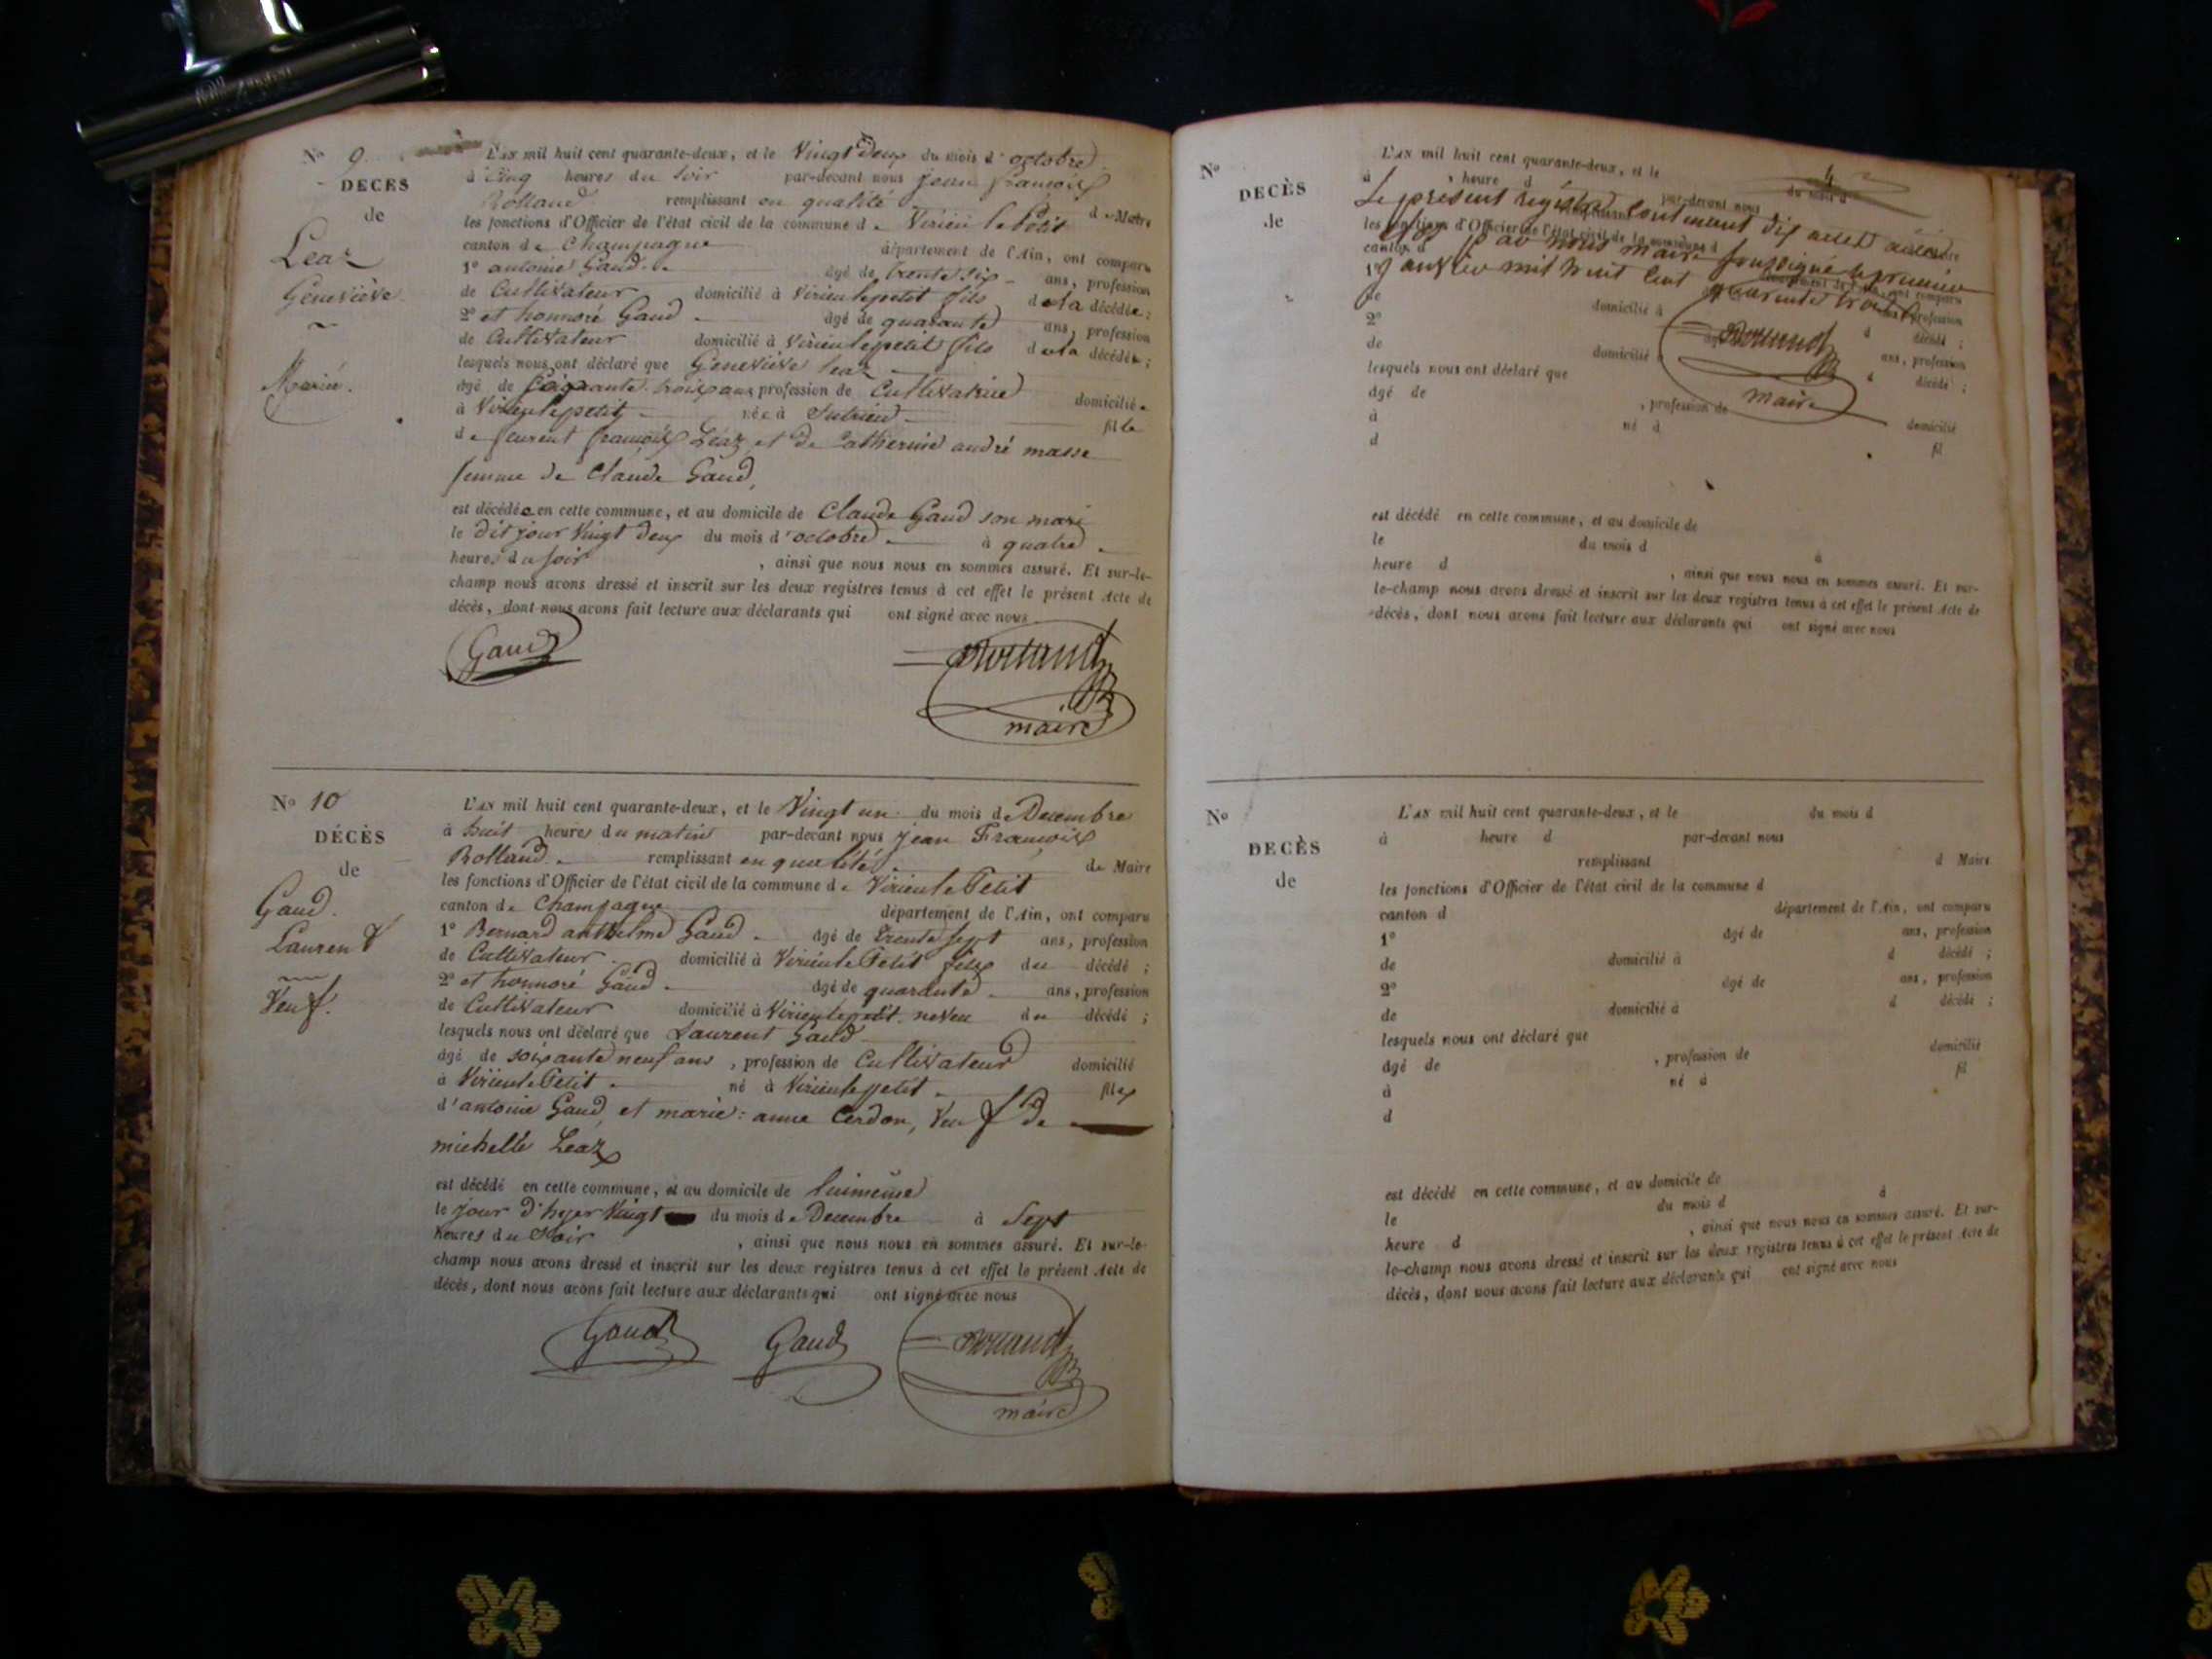 N° 9
DÉCÈS
de
Leaz
Geneviève
Mariée.
L'AN mil huit cent quarante-deux, et le Vingt Deux du mois d'octobre
à Cinq heures du soir par-devant nous jean françois
Rolland remplissant en qualité de Maire
les fonctions d'Officier de l'état civil de la commune de Virieu le Petit
canton de Champagne département de l'Ain, ont comparu
1° antoine Gaud âgé de trente six ans, profession
de Cultivateur domicilié à Virieu lepetit fils de la décédée;
2° et honnoré Gaud âgé de quarante ans, profession
de Cultivateur domicilié à Virieu lepetit fils de la décédée;
lesquels nous ont déclaré que Geneviève leaz
âgé de soixante trois ans profession de Cultivatrice domiciliée
à Virieu lepetit née à Sutrieu fille
de feurent françois Léaz et de Catherine andré masse
femme de Claude Gaud,
est décédée en cette commune, et au domicile de Claude Gaud son mari
le dit jour Vingt deux du mois d'octobre à quatre
heures du soir, ainsi que nous nous en sommes assuré. Et sur-le-
champ nous avons dressé et inscrit sur les deux registres tenus à cet effet le présent Acte de
décès, dont nous avons fait lecture aux déclarants qui ont signé avec nous
Gaud Rolland
maire
N° 10
DÉCÈS
de
Gaud.
Laurent
Veuf.
L'AN mil huit cent quarante-deux, et le Vingt un du mois de Decembre
à huit heures du matin par-devant nous jean François
Rolland remplissant en qualité de Maire
les fonctions d'Officier de l'état civil de la commune de Virieu le Petit
canton de Champagne département de l'Ain, ont comparu
1° Bernard anthelme Gaud âgé de trente sept ans, profession
de Cultivateur domicilié à Virieu le Petit fils du décédé;
2° et honnoré Gaud âgé de quarante ans, profession
de Cultivateur domicilié à Virieu lepetit neveu du décédé;
lesquels nous ont déclaré que Laurent Gaud
âgé de soixante neuf ans, profession de Cultivateur domicilié
à Virieu le Petit né à Virieu lepetit fils
d'antoine Gaud, et marie: anne Cerdon, Veuf De
michelle Leaz
est décédé en cette commune, et au domicile de luimême
le jour d'hyer Vingt du mois de Decembre à Sept
heures du Soir, ainsi que nous nous en sommes assuré. Et sur-le-
champ nous avons dressé et inscrit sur les deux registres tenus à cet effet le présent Acte de
décès, dont nous avons fait lecture aux déclarants qui ont signé avec nous
Gaud Gaud Rolland
maire
N°
DÉCÈS
de
L'AN mil huit cent quarante-deux, et le du mois d
à heure d par-devant nous
Le present registre contenant dix actes
les fonctions d'Officier de l'état civil de la commune d
par nous maire soussigné le premier
canton d département de l'Ain, ont comparu
janvier mil huit cent quarante trois
1° ans, profession
de domicilié à d décédé;
2° ans, profession
de domicilié d décédé;
Rolland
maire
lesquels nous ont déclaré que
âgé de, profession de domicilié
à né à fil
d
est décédé en cette commune, et au domicile de
le du mois d à
heure d, ainsi que nous nous en sommes assuré. Et sur-
le-champ nous avons dressé et inscrit sur les deux registres tenus à cet effet le présent Acte de
décès, dont nous avons fait lecture aux déclarants qui ont signé avec nous
N°
DÉCÈS
de
L'AN mil huit cent quarante-deux, et le du mois d
à heure d par-devant nous
remplissant d Maire
les fonctions d'Officier de l'état civil de la commune d
canton d département de l'Ain, ont comparu
1° âgé de ans, profession
de domicilié à d décédé;
2° âgé de ans, profession
de domicilié à d décédé;
lesquels nous ont déclaré que
âgé de, profession de domicilié
à né à fil
d
est décédé en cette commune, et au domicile de
le du mois d à
heure d, ainsi que nous nous en sommes assuré. Et sur-
le-champ nous avons dressé et inscrit sur les deux registres tenus à cet effet le présent Acte de
décès, dont nous avons fait lecture aux déclarants qui ont signé avec nous